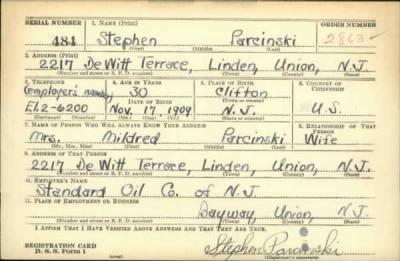 SERIAL NUMBER 1. NAME (Print) ORDER NUMBER
484 Stephen Parcinski 2863
(First) (Middle) (Last)
2. ADDRESS (Print)
2217 De Witt Terrace, Linden, Union, N.J.
(Number and street or R. F. D. number) (Town) (County) (State)
3. TELEPHONE 4. AGE IN YEARS 5. PLACE OF BIRTH 6. COUNTRY OF CITIZENSHIP
(employer's 30 Clifton
DATE OF BIRTH
El.2-6200 Nov. 17, 1909 N.J. U.S.
7. NAME OF PERSON WHO WILL ALWAYS KNOW YOUR ADDRESS 8. RELATIONSHIP OF THAT PERSON
Mrs. Mildred Parcinski Wife
(Mr., Mrs., Miss) (First) (Middle) (Last)
9. ADDRESS OF THAT PERSON
2217 De Witt Terrace, Linden, Union, N.J.
(Number and street or R. F. D. number) (Town) (County) (State)
10. EMPLOYER'S NAME
Standard Oil Co. of N.J.
11. PLACE OF EMPLOYMENT OR BUSINESS
Bayway, Union, N.J.
(Number and street or R. F. D. number) (Town) (County) (State)
I AFFIRM THAT I HAVE VERIFIED ABOVE ANSWERS AND THAT THEY ARE TRUE.
REGISTRATION CARD
D. S. S. Form 1
Stephen Parcinski
(Registrant's signature)